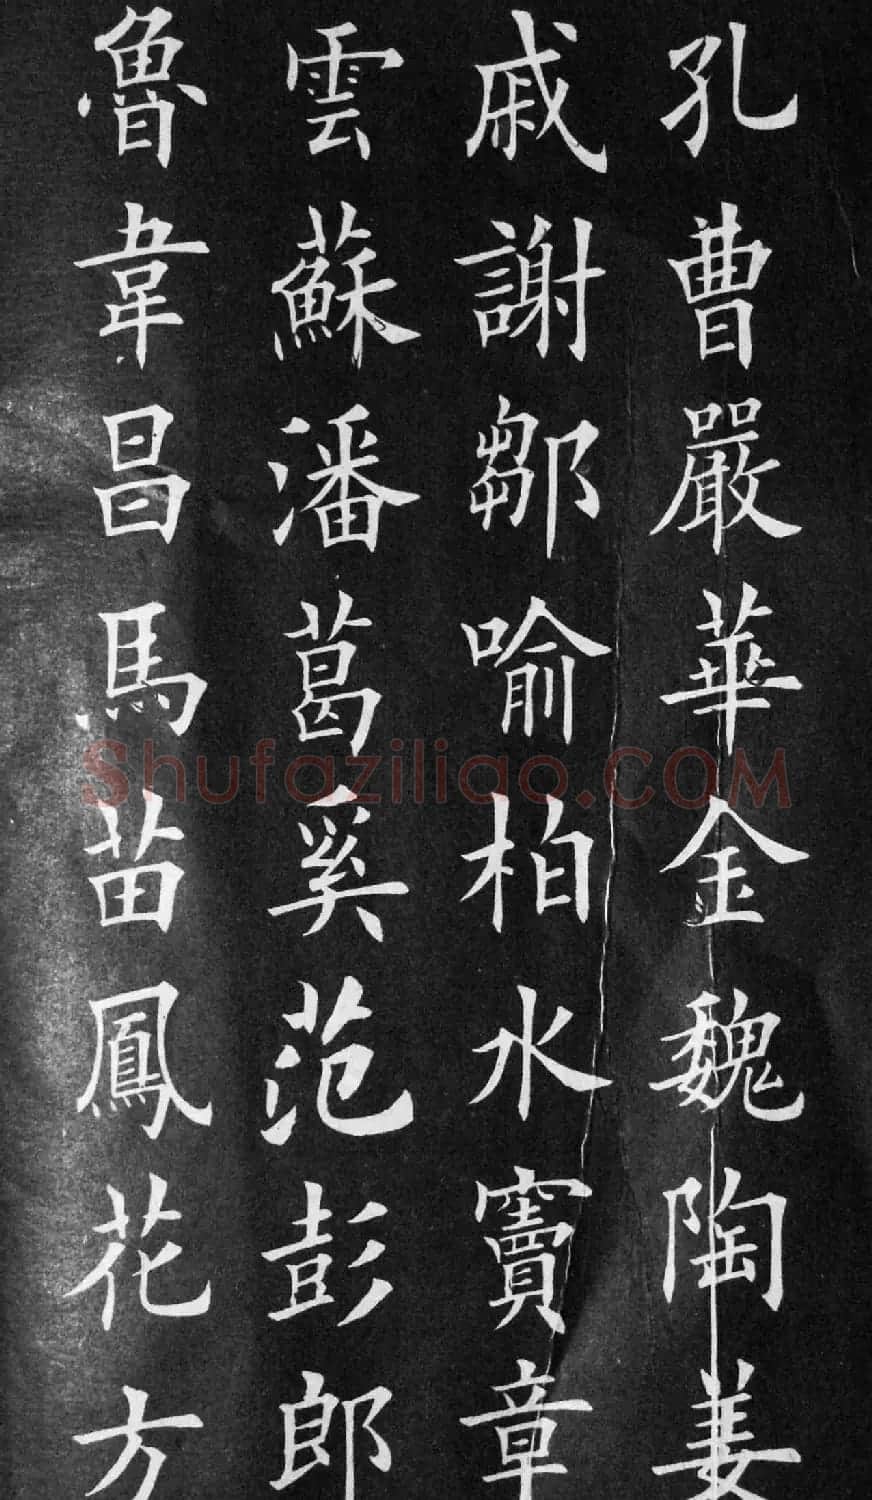 孔曹嚴華金魏陶姜
戚謝鄒喻柏水竇章
雲蘇潘葛奚范彭郎
魯韋昌馬苗鳳花方
Shufaziliao.COM